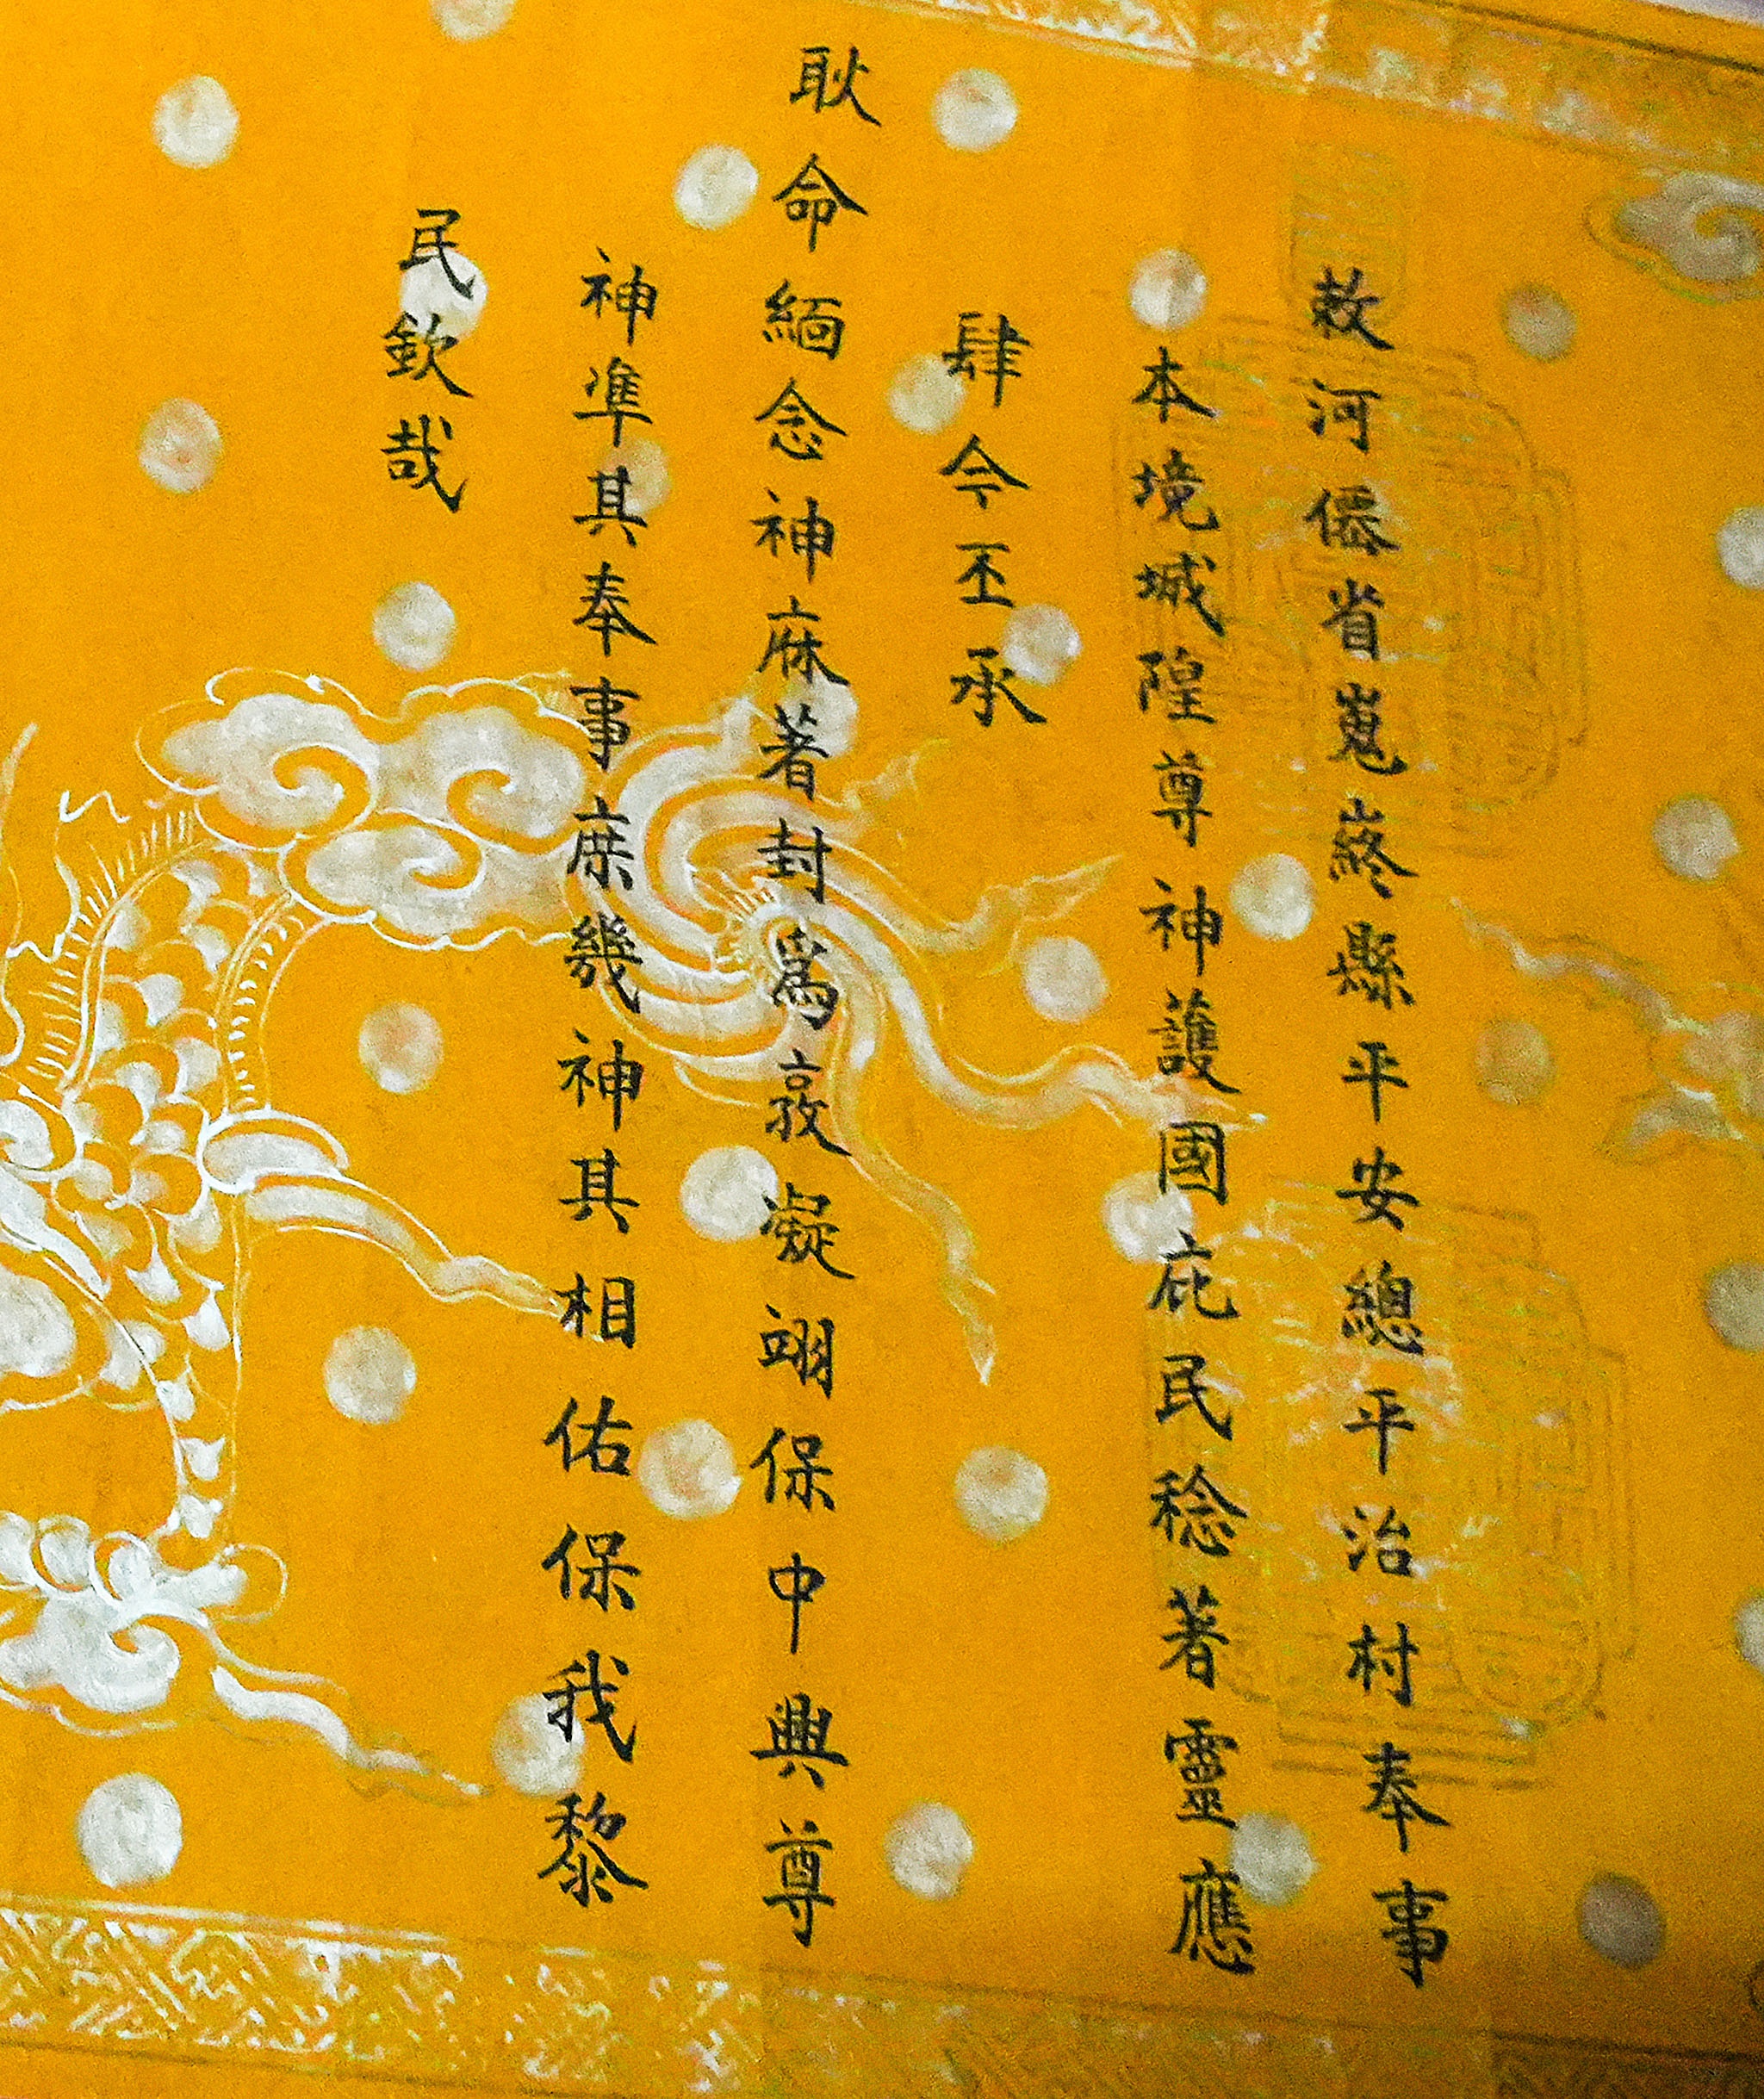 敕河僊省嵬嵸縣平安總平治村奉事
本境城隍尊神護國庇民稔著靈應
肆今丕承
耿命緬念神庥著封爲敦凝翊保中興尊
神準其奉事庶幾神其相佑保我黎
民欽哉